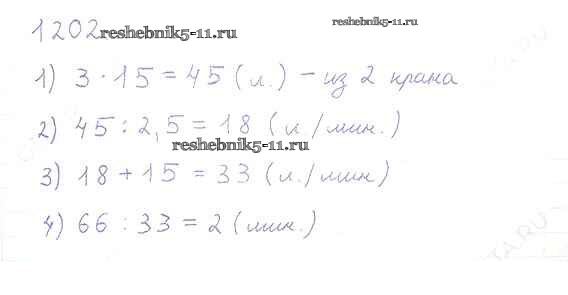 reshebnik5-11.ru
1202 reshebnik5-11.ru
1) 3 · 15 = 45 (л.) - из 2 крана
2) 45 : 2,5 = 18 (л/мин.)
reshebnik5-11.ru
3) 18 + 15 = 33 (л./мин)
4) 66 : 33 = 2 (мин.)